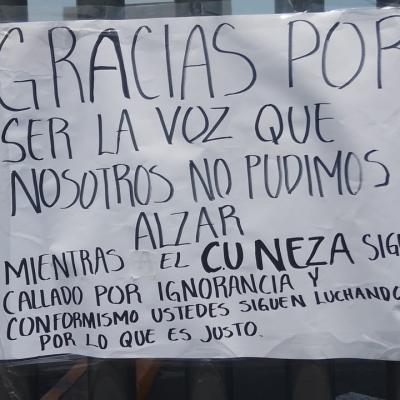 GRACIAS POR
SER LA VOZ QUE
NOSOTROS NO PUDIMOS
ALZAR
MIENTRAS EL CU NEZA SIG
CALLADO POR IGNORANCIA Y
CONFORMISMO USTEDES SIGUEN LUCHANDO
POR LO QUE ES JUSTO.